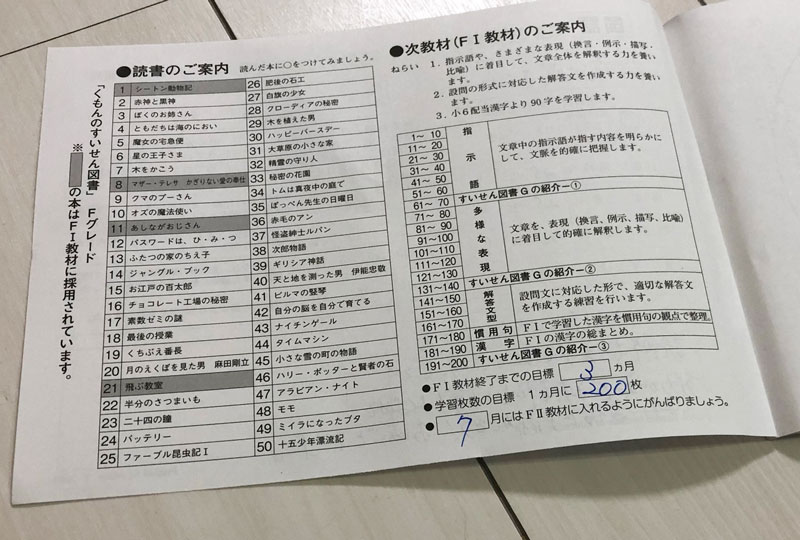 ●読書のご案内 読んだ本に○をつけてみましょう。
「くもんのすいせん図書」Fグレード
※ の本はFⅠ教材に採用されています。
1 シートン動物記
2 赤神と黒神
3 ぼくのお姉さん
4 ともだちは海のにおい
5 魔女の宅急便
6 星の王子さま
7 木をかこう
8 マザー・テレサ かぎりない愛の奉仕
9 クマのプーさん
10 オズの魔法使い
11 あしながおじさん
12 パスワードは、ひ・み・つ
13 ふたつの家のちえ子
14 ジャングル・ブック
15 お江戸の百太郎
16 チョコレート工場の秘密
17 素数ゼミの謎
18 最後の授業
19 くちぶえ番長
20 月のえくぼを見た男 麻田剛立
21 飛ぶ教室
22 半分のさつまいも
23 二十四の瞳
24 バッテリー
25 ファーブル昆虫記Ⅰ
26 肥後の石工
27 白旗の少女
28 クローディアの秘密
29 木を植えた男
30 ハッピーバースデー
31 大草原の小さな家
32 精霊の守り人
33 秘密の花園
34 トムは真夜中の庭で
35 ぽっぺん先生の日曜日
36 赤毛のアン
37 怪盗紳士ルパン
38 次郎物語
39 ギリシア神話
40 天と地を測った男 伊能忠敬
41 ビルマの竪琴
42 自分の脳を自分で育てる
43 ナイチンゲール
44 タイムマシン
45 小さな雪の町の物語
46 ハリー・ポッターと賢者の石
47 アラビアン・ナイト
48 モモ
49 ミイラになったブタ
50 十五少年漂流記
●次教材(FⅠ教材)のご案内
ねらい 1. 指示語や、さまざまな表現(換言・例示・描写・
比喩)に着目して、文章全体を解釈する力を養い
ます。
2. 設問の形式に対応した解答文を作成する力を養い
ます。
3. 小6配当漢字より90字を学習します。
1～10
11～20
21～30
31～40
41～50
51～60
指示語
文章中の指示語が指す内容を明らかに
して、文脈を的確に把握します。
61～70 すいせん図書Gの紹介―①
71～80
81～90
91～100
101～110
111～120
121～130
多様な表現
文章を、表現(換言、例示、描写、比喩)
に着目して的確に解釈します。
131～140 すいせん図書Gの紹介―②
141～150
151～160
161～170
解答文型
設問文に対応した形で、適切な解答文
を作成する練習を行います。
171～180 慣用句 FⅠで学習した漢字を慣用句の観点で整理。
181～190 漢字 FⅠの漢字の総まとめ。
191～200 すいせん図書Gの紹介―③
●FⅠ教材終了までの目標 3 ヵ月
●学習枚数の目標 1ヵ月に 200 枚
● 7 月にはFⅡ教材に入れるようにがんばりましょう。